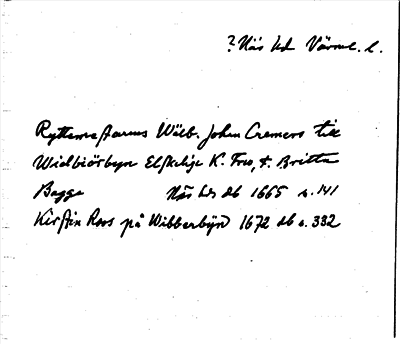 ? Näs hd Värml. l.
Ryttmestarens Wälb. Johan Cremers till
Widbiörbyn Elskelige K. Fru, F. Britta
Bagge Näs hds db 1665 s. 141
Kirstin Roos på Wibberbyn 1672 db s. 332